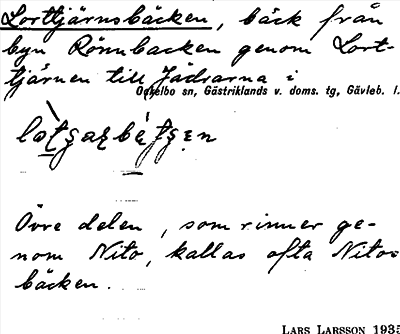 Lorttjärnsbäcken, bäck från
byn Rönnbacken genom Lort-
tjärnen till Jädraarna i
Ockelbo sn, Gästriklands v. doms. tg, Gävleb. l.
Övre delen, som rinner ge-
nom Nito, kallas ofta Nito-
bäcken.
LARS LARSSON 1935